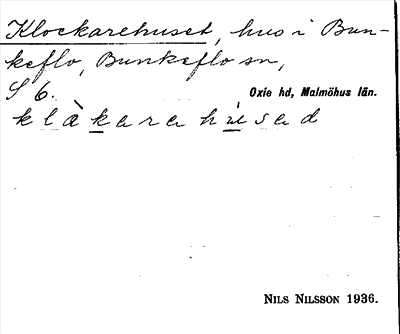 Klockarehuset, hus i Bun-
keflo, Bunkeflo sn,
S 6. Oxie hd, Malmöhus län.
klàkarahused
NILS NILSSON 1936.